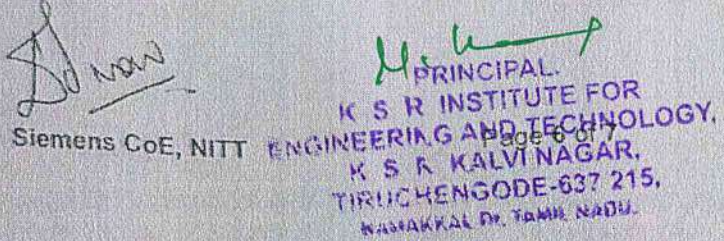 PRINCIPAL.
K S R INSTITUTE FOR
Siemens CoE, NITT ENGINEERING AND TECHNOLOGY,
Page 6 of 7
K S R KALVI NAGAR,
TIRUCHENGODE-637 215,
NAMAKKAL Dt, TAMIL NADU.